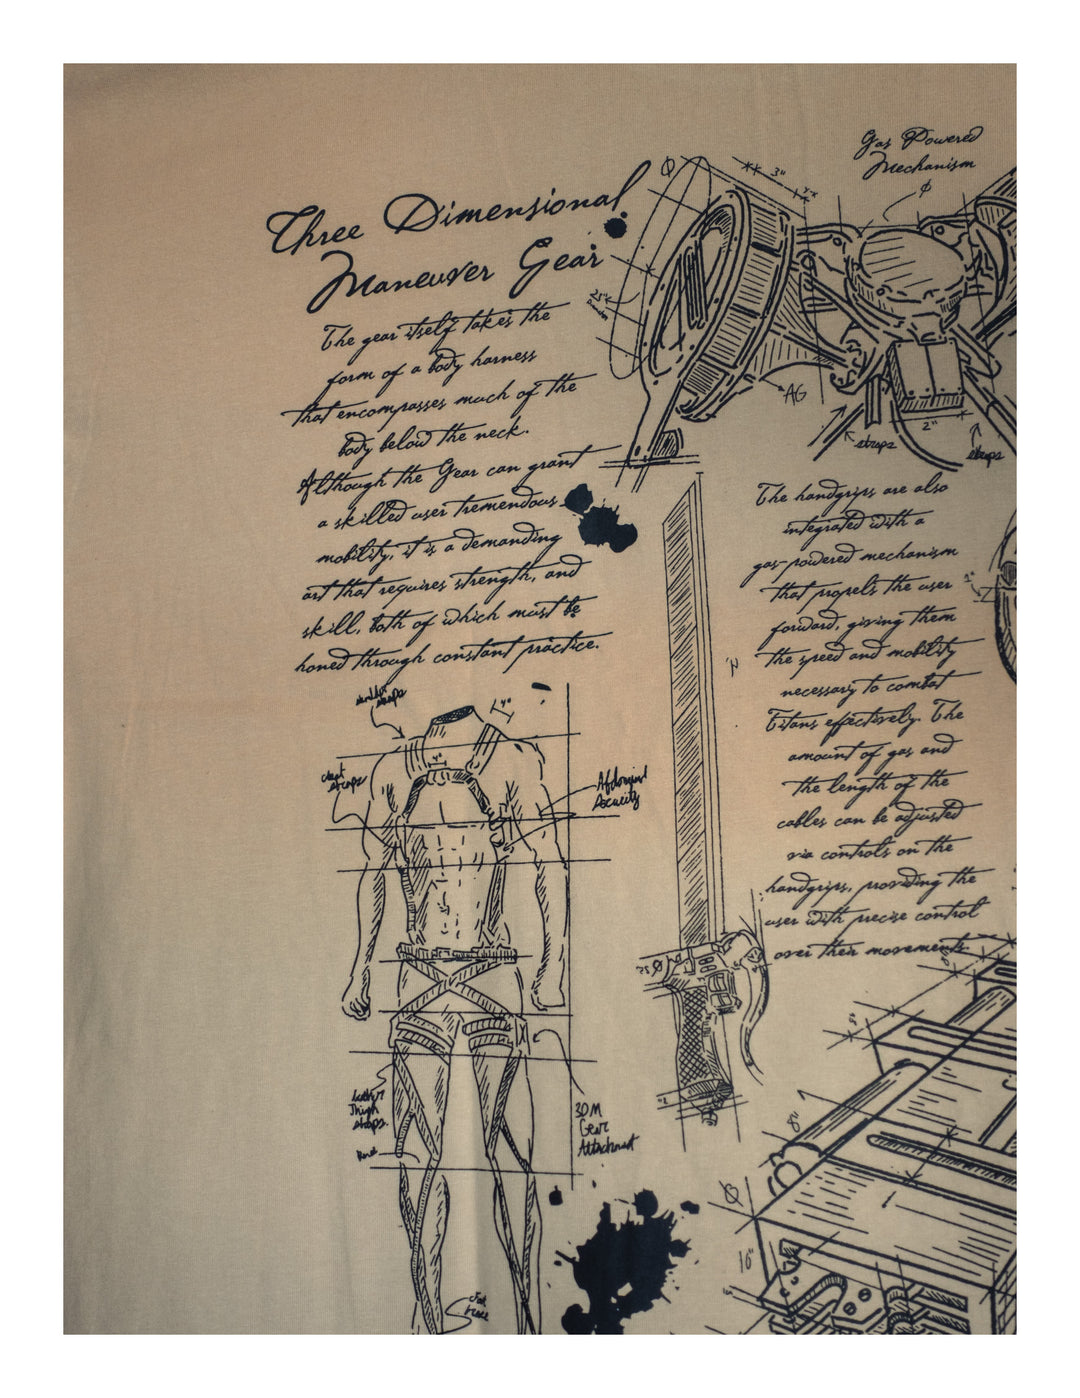 Three Dimensional
Maneuver Gear
The gear itself takes the
form of a body harness
that encompasses much of the
body below the neck.
Although the Gear can grant
a skilled user tremendous
mobility, it is a demanding
art that requires strength, and
skill, both of which must be
honed through constant practice.
Gas Powered
Mechanism
3"
AG
straps
2"
straps
The handgrips are also
integrated with a
gas-powered mechanism
that propels the user
forward, giving them
the speed and mobility
necessary to combat
Titans effectively. The
amount of gas and
the length of the
cables can be adjusted
via controls on the
handgrips, providing the
user with precise control
over their movements.
straps
4"
straps
Thigh
straps.
Gear
Attachment
8"
16"